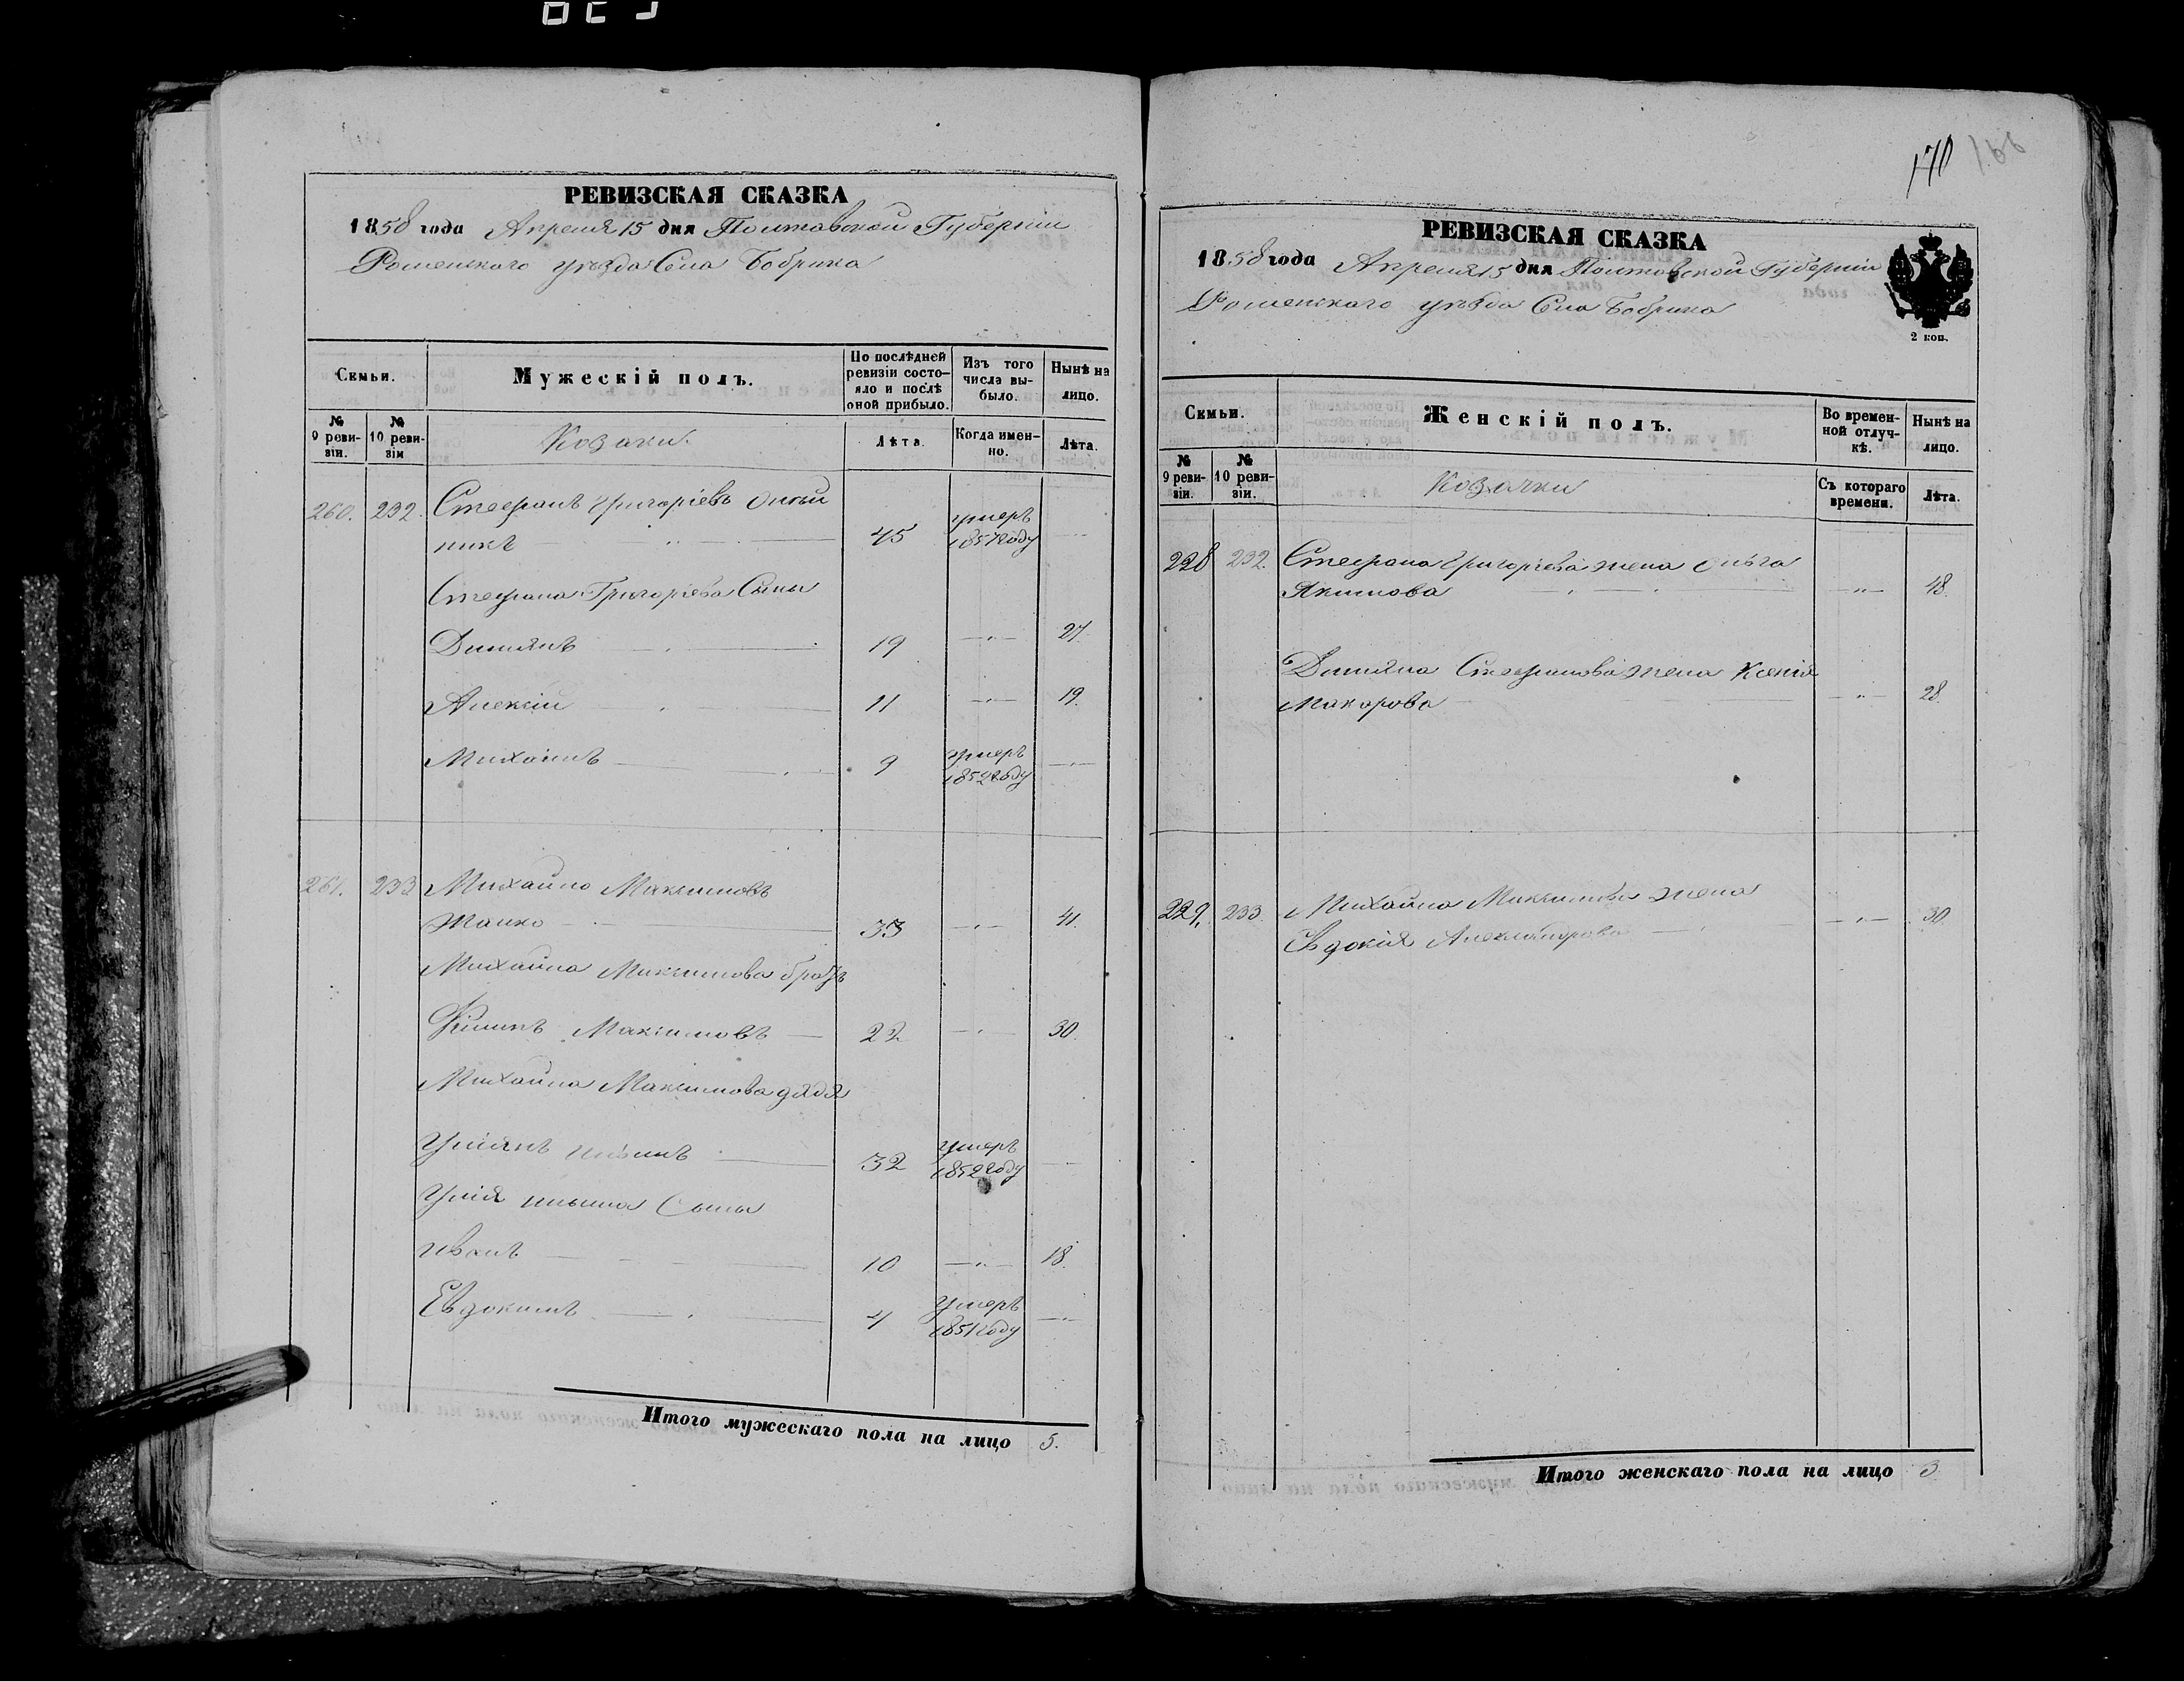 РЕВИЗСКАЯ СКАЗКА
1858 года Апреля 15 дня Полтавской Губернии
Роменскаго уѣзда Села Бобрика
Семьи.
Мужескій полъ.
По послѣдней ревизіи состояло и послѣ оной прибыло.
Изъ того числа выбыло.
Нынѣ на лицо.
№ 9 ревизіи.
№ 10 ревизіи
Козаки.
Лѣта.
Когда именно.
Лѣта.
260. 232. Стефанъ Григоріевъ
никъ 45 умеръ 1857 году
Стефана Григоріева Сыны
Диміянъ 19 —"— 27.
Алексѣй 11 —"— 19.
Михаилъ 9 умеръ 1852 году —"—
261. 233 Михайло Максимовъ
33 —"— 41.
Михайла Максимова братъ
Филипъ Максимовъ — 22 —"— 30.
Михайла Максимова дядя
32 умеръ 1852 году
Сыны
Иванъ 10 —"— 18.
Евдокимъ 4 умеръ 1851 году —"—
Итого мужескаго пола на лицо 5.
170 166
РЕВИЗСКАЯ СКАЗКА
1858 года Апреля 15 дня Полтавской Губернии
Роменскаго уѣзда Села Бобрика
2 коп.
Семьи.
Женскій полъ.
Во временной отлучкѣ.
Нынѣ на лицо.
№ 9 ревизіи.
№ 10 ревизіи.
Козачки
Съ котораго времени.
Лѣта.
228 232. Стефана Григоріева жена Ольга
Якимова —"— 48.
Диміяна Стефанова жена Ксенія
Макарова —"— 28.
229. 233. Михайла Максимова жена
Евдокія Александрова —"— 30.
Итого женскаго пола на лицо 3.